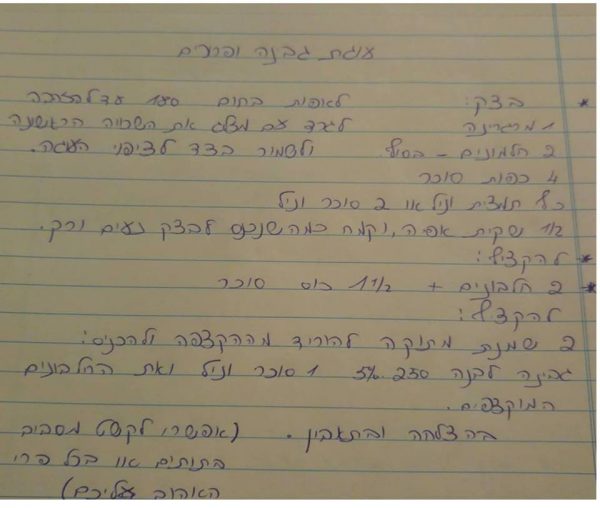 עוגת גבנה ופרכים
* בצק: לאפות בחום 180 עד להזהבה
1 מרגרינה לגרד עם מזלג את השכבה הראשונה
2 חלמונים - בסוף. ולשמור בצד לציפוי העוגה.
4 כפות סוכר
כף תמצית וניל או 2 סוכר וניל
1/2 שקית אפיה, וקמח כמה שנכנס לבצק נעים ורק.
* להקציף:
* 2 חלבונים + 1 1/2 כוס סוכר
להקציף:
2 שמנת מתוקה להוריד מההקצפה ולהכניס:
גבינה לבנה 250 5% 1 סוכר וניל ואת החלבונים
המוקצפים.
בהצלחה ובתאבון. (אפשר לקשט מסביב
בתותים או בכל פרי
האהוב עליכם)